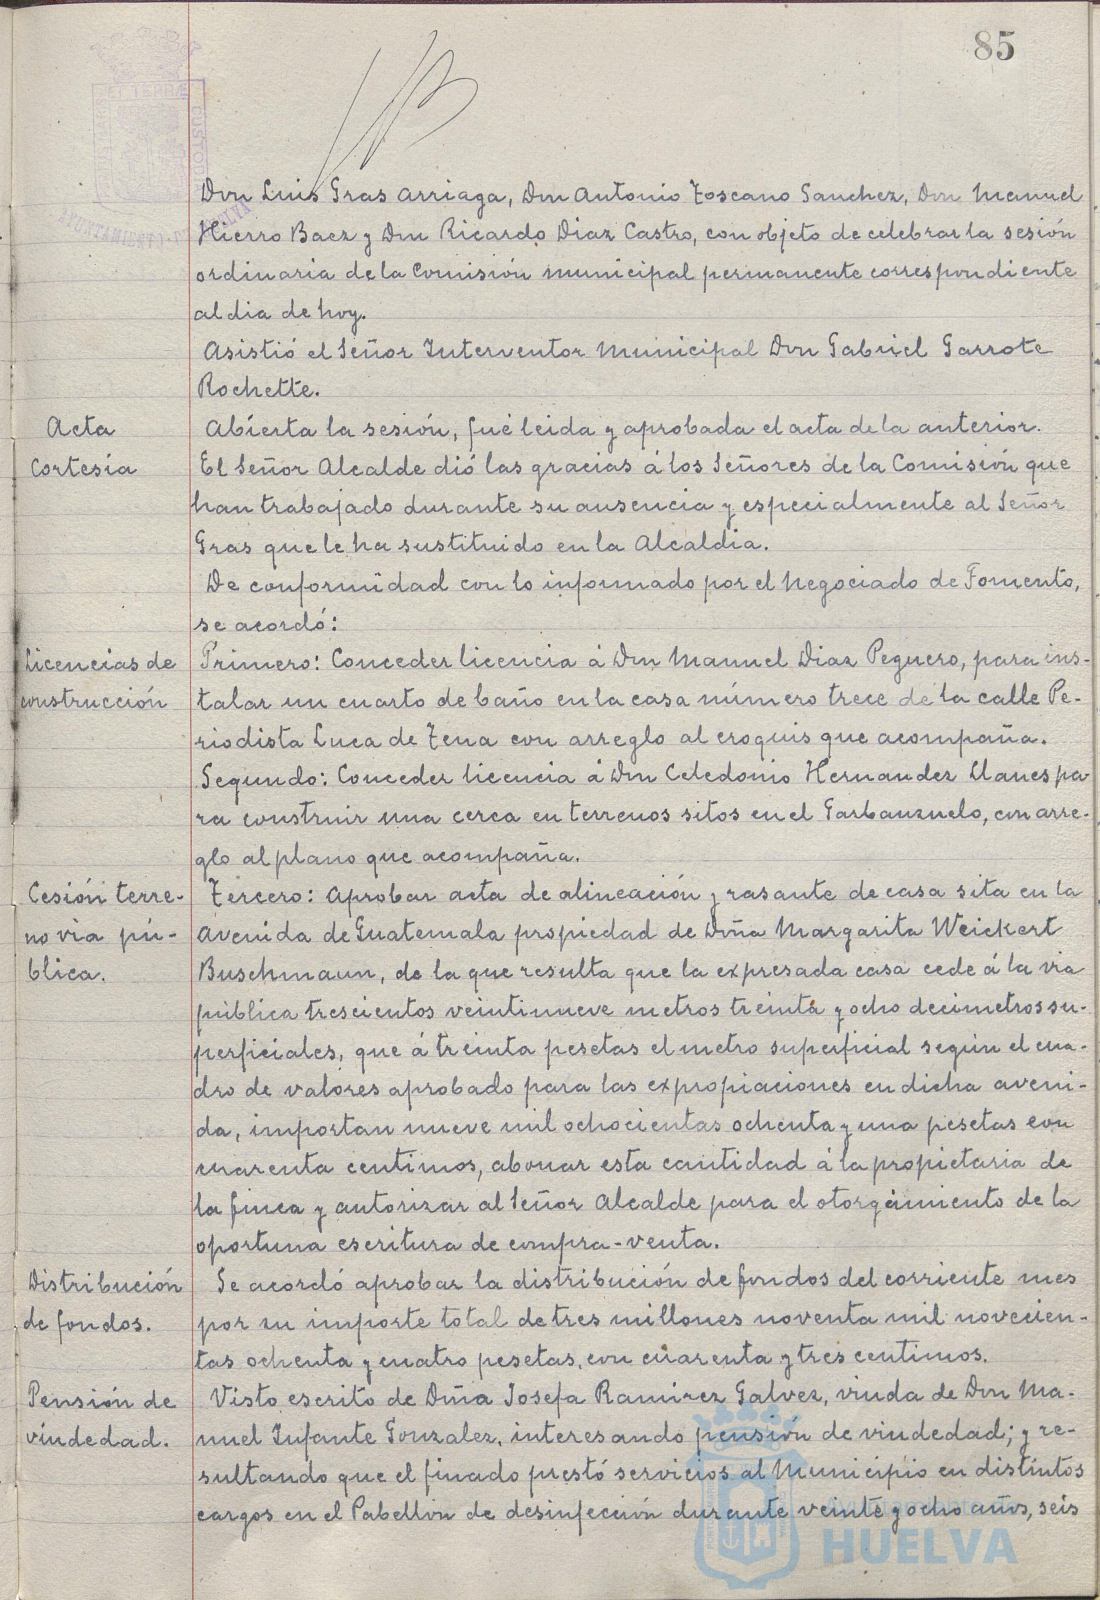 85
Don Luis Gras Arriaga, Don Antonio Toscano Sanchez, Don Manuel
Hierro Baez y Don Ricardo Diaz Castro, con objeto de celebrar la sesión
ordinaria de la Comisión municipal permanente correspondiente
al dia de hoy.
Asistió el Señor Interventor Municipal Don Gabriel Garrote
Rochette.
Acta
Abierta la sesión, fué leida y aprobada el acta de la anterior.
Cortesía
El Señor Alcalde dió las gracias á los Señores de la Comisión que
han trabajado durante su ausencia y especialmente al Señor
Gras que le ha sustituido en la Alcaldia.
De conformidad con lo informado por el Negociado de Fomento,
se acordó:
Licencias de
construcción
Primero: Conceder licencia á Don Manuel Diaz Peguero, para ins-
talar un cuarto de baño en la casa número trece de la calle Pe-
riodista Luca de Tena con arreglo al croquis que acompaña.
Segundo: Conceder licencia á Don Celedonio Hernandez Llanes pa
ra construir una cerca en terrenos sitos en el Garbanzuelo, con arre-
glo al plano que acompaña.
Cesión terre-
no via pú-
blica.
Tercero: Aprobar acta de alineación y rasante de casa sita en la
Avenida de Guatemala propiedad de Doña Margarita Weickert
Buschmann, de la que resulta que la expresada casa cede á la via
pública trescientos veintinueve metros treinta y ocho decimetros su-
perficiales, que á treinta pesetas el metro superficial según el cua-
dro de valores aprobado para las expropiaciones en dicha aveni-
da, importan nueve mil ochocientas ochenta y una pesetas con
cuarenta centimos, abonar esta cantidad á la propietaria de
la finca y autorizar al Señor Alcalde para el otorgamiento de la
oportuna escritura de compra-venta.
Distribución
de fondos.
Se acordó aprobar la distribución de fondos del corriente mes
por su importe total de tres millones noventa mil novecien-
tas ochenta y cuatro pesetas, con cuarenta y tres centimos.
Pensión de
viudedad.
Visto escrito de Dña Josefa Ramirez Galvez, viuda de Don Ma-
nuel Infante Gonzalez, interesando pensión de viudedad; y re-
sultando que el finado prestó servicios al Municipio en distintos
cargos en el Pabellon de desinfección durante veinte y ocho años, seis
AYUNTAMIENTO DE
HUELVA